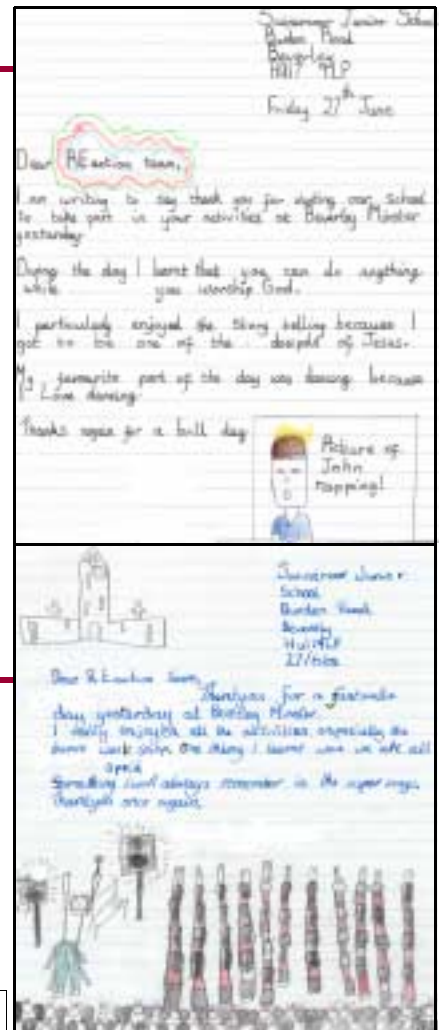 Swinemoor Junior School
Burden Road
Beverley
HU17 9LP
Friday 27th June
Dear REaction team,
I am writing to say thank you for visiting our school
to take part in your activities at Beverley Minster
yesterday.
During the day I learnt that you can do anything
while you worship God.
I particularly enjoyed the story telling because I
got to be one of the disciple of Jesus.
My favourite part of the day was dancing because
I Love dancing.
Thanks again for a brill day
Picture of
John
rapping!
Swinemoor Junior
School
Burden Road
Beverley
Dear REaction team,
Thankyou for a fantastic
day yesterday at Beverley Minster.
I really enjoyed all the activities especially the
One thing I learnt was we are all
Something I will always remember is the
Thankyou once again,